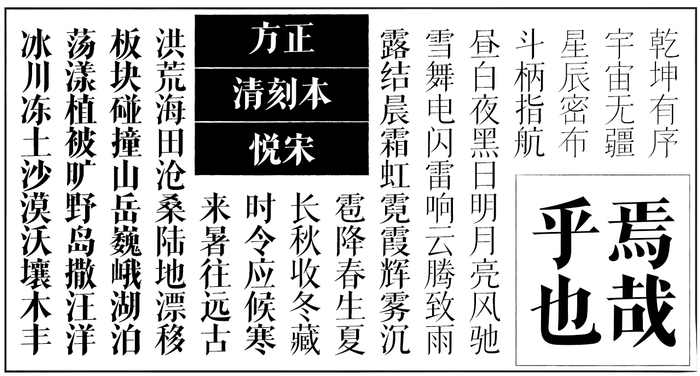 乾坤有序
宇宙无疆
星辰密布
斗柄指航
昼白夜黑日明月亮风驰
雪舞电闪雷响云腾致雨
露结晨霜虹霓霞辉雾沉
雹降春生夏
长秋收冬藏
时令应候寒
来暑往远古
洪荒海田沧桑陆地漂移
板块碰撞山岳巍峨湖泊
荡漾植被旷野岛撒汪洋
冰川冻土沙漠沃壤木丰
方正
清刻本
悦宋
焉哉
乎也